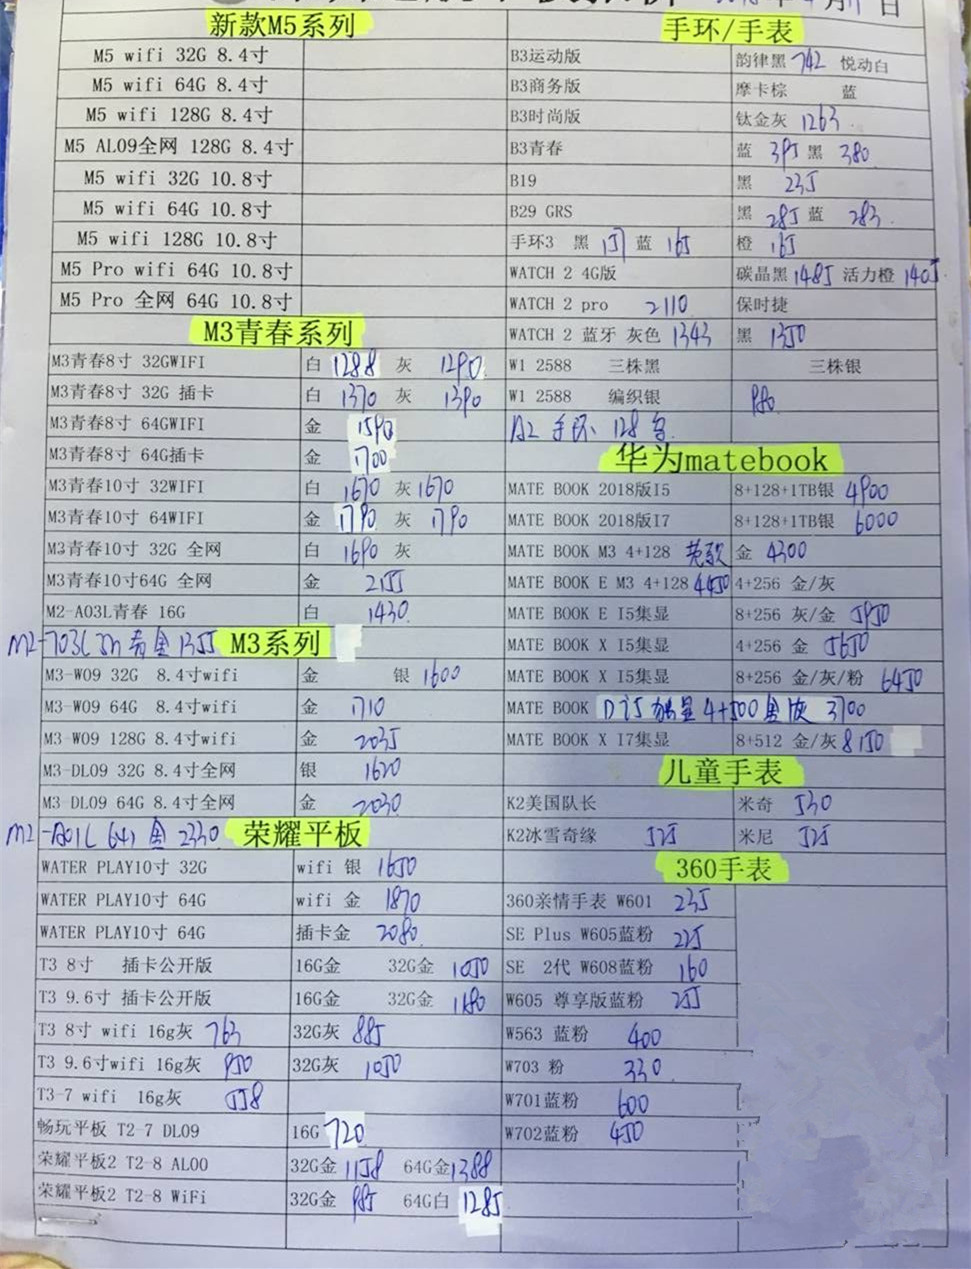 新款M5系列
M5 wifi 32G 8.4寸
M5 wifi 64G 8.4寸
M5 wifi 128G 8.4寸
M5 AL09全网 128G 8.4寸
M5 wifi 32G 10.8寸
M5 wifi 64G 10.8寸
M5 wifi 128G 10.8寸
M5 Pro wifi 64G 10.8寸
M5 Pro 全网 64G 10.8寸
M3青春系列
M3青春8寸 32GWIFI 白 1288 灰 1290
M3青春8寸 32G 插卡 白 1370 灰 1390
M3青春8寸 64GWIFI 金 1590
M3青春8寸 64G插卡 金 1700
M3青春10寸 32WIFI 白 1670 灰 1670
M3青春10寸 64WIFI 金 1790 灰 1790
M3青春10寸 32G 全网 白 1690 灰
M3青春10寸64G 全网 金 2155
M2-A03L青春 16G 白 1430
M2-703L 金 1355 M3系列
M3-W09 32G 8.4寸wifi 金 银 1600
M3-W09 64G 8.4寸wifi 金 1710
M3-W09 128G 8.4寸wifi 金 2035
M3-DL09 32G 8.4寸全网 银 1620
M3-DL09 64G 8.4寸全网 金 2030
M2-A01L 641 金 2330 荣耀平板
WATER PLAY10寸 32G wifi 银 1650
WATER PLAY10寸 64G wifi 金 1870
WATER PLAY10寸 64G 插卡金 2080
T3 8寸 插卡公开版 16G金 32G金 1050
T3 9.6寸 插卡公开版 16G金 32G金 1180
T3 8寸 wifi 16g灰 763 32G灰 885
T3 9.6寸wifi 16g灰 950 32G灰 1050
T3-7 wifi 16g灰 558
畅玩平板 T2-7 DL09 16G 720
荣耀平板2 T2-8 AL00 32G金 1158 64G金 1388
荣耀平板2 T2-8 WiFi 32G金 985 64G白 1285
手环/手表
B3运动版 韵律黑 742 悦动白
B3商务版 摩卡棕 蓝
B3时尚版 钛金灰 1263
B3青春 蓝 395 黑 380
B19 黑 235
B29 GRS 黑 285 蓝 283
手环3 黑 蓝 165 橙 165
WATCH 2 4G版 碳晶黑 1485 活力橙 1405
WATCH 2 pro 2110 保时捷
WATCH 2 蓝牙 灰色 1343 黑 1350
W1 2588 三株黑 三株银
W1 2588 编织银 880
A2 手环 128
华为matebook
MATE BOOK 2018版I5 8+128+1TB银 4900
MATE BOOK 2018版I7 8+128+1TB银 6000
MATE BOOK M3 4+128 金 4300
MATE BOOK E M3 4+128 4450 4+256 金/灰
MATE BOOK E I5集显 8+256 灰/金 5950
MATE BOOK X I5集显 4+256 金 5650
MATE BOOK X I5集显 8+256 金/灰/粉 6450
MATE BOOK D i5 独显 4+500 金灰 3700
MATE BOOK X I7集显 8+512 金/灰 8150
儿童手表
K2美国队长 米奇 530
K2冰雪奇缘 525 米尼 525
360手表
360亲情手表 W601 235
SE Plus W605蓝粉 225
SE 2代 W608蓝粉 160
W605 尊享版蓝粉 255
W563 蓝粉 400
W703 粉 330
W701蓝粉 600
W702蓝粉 450